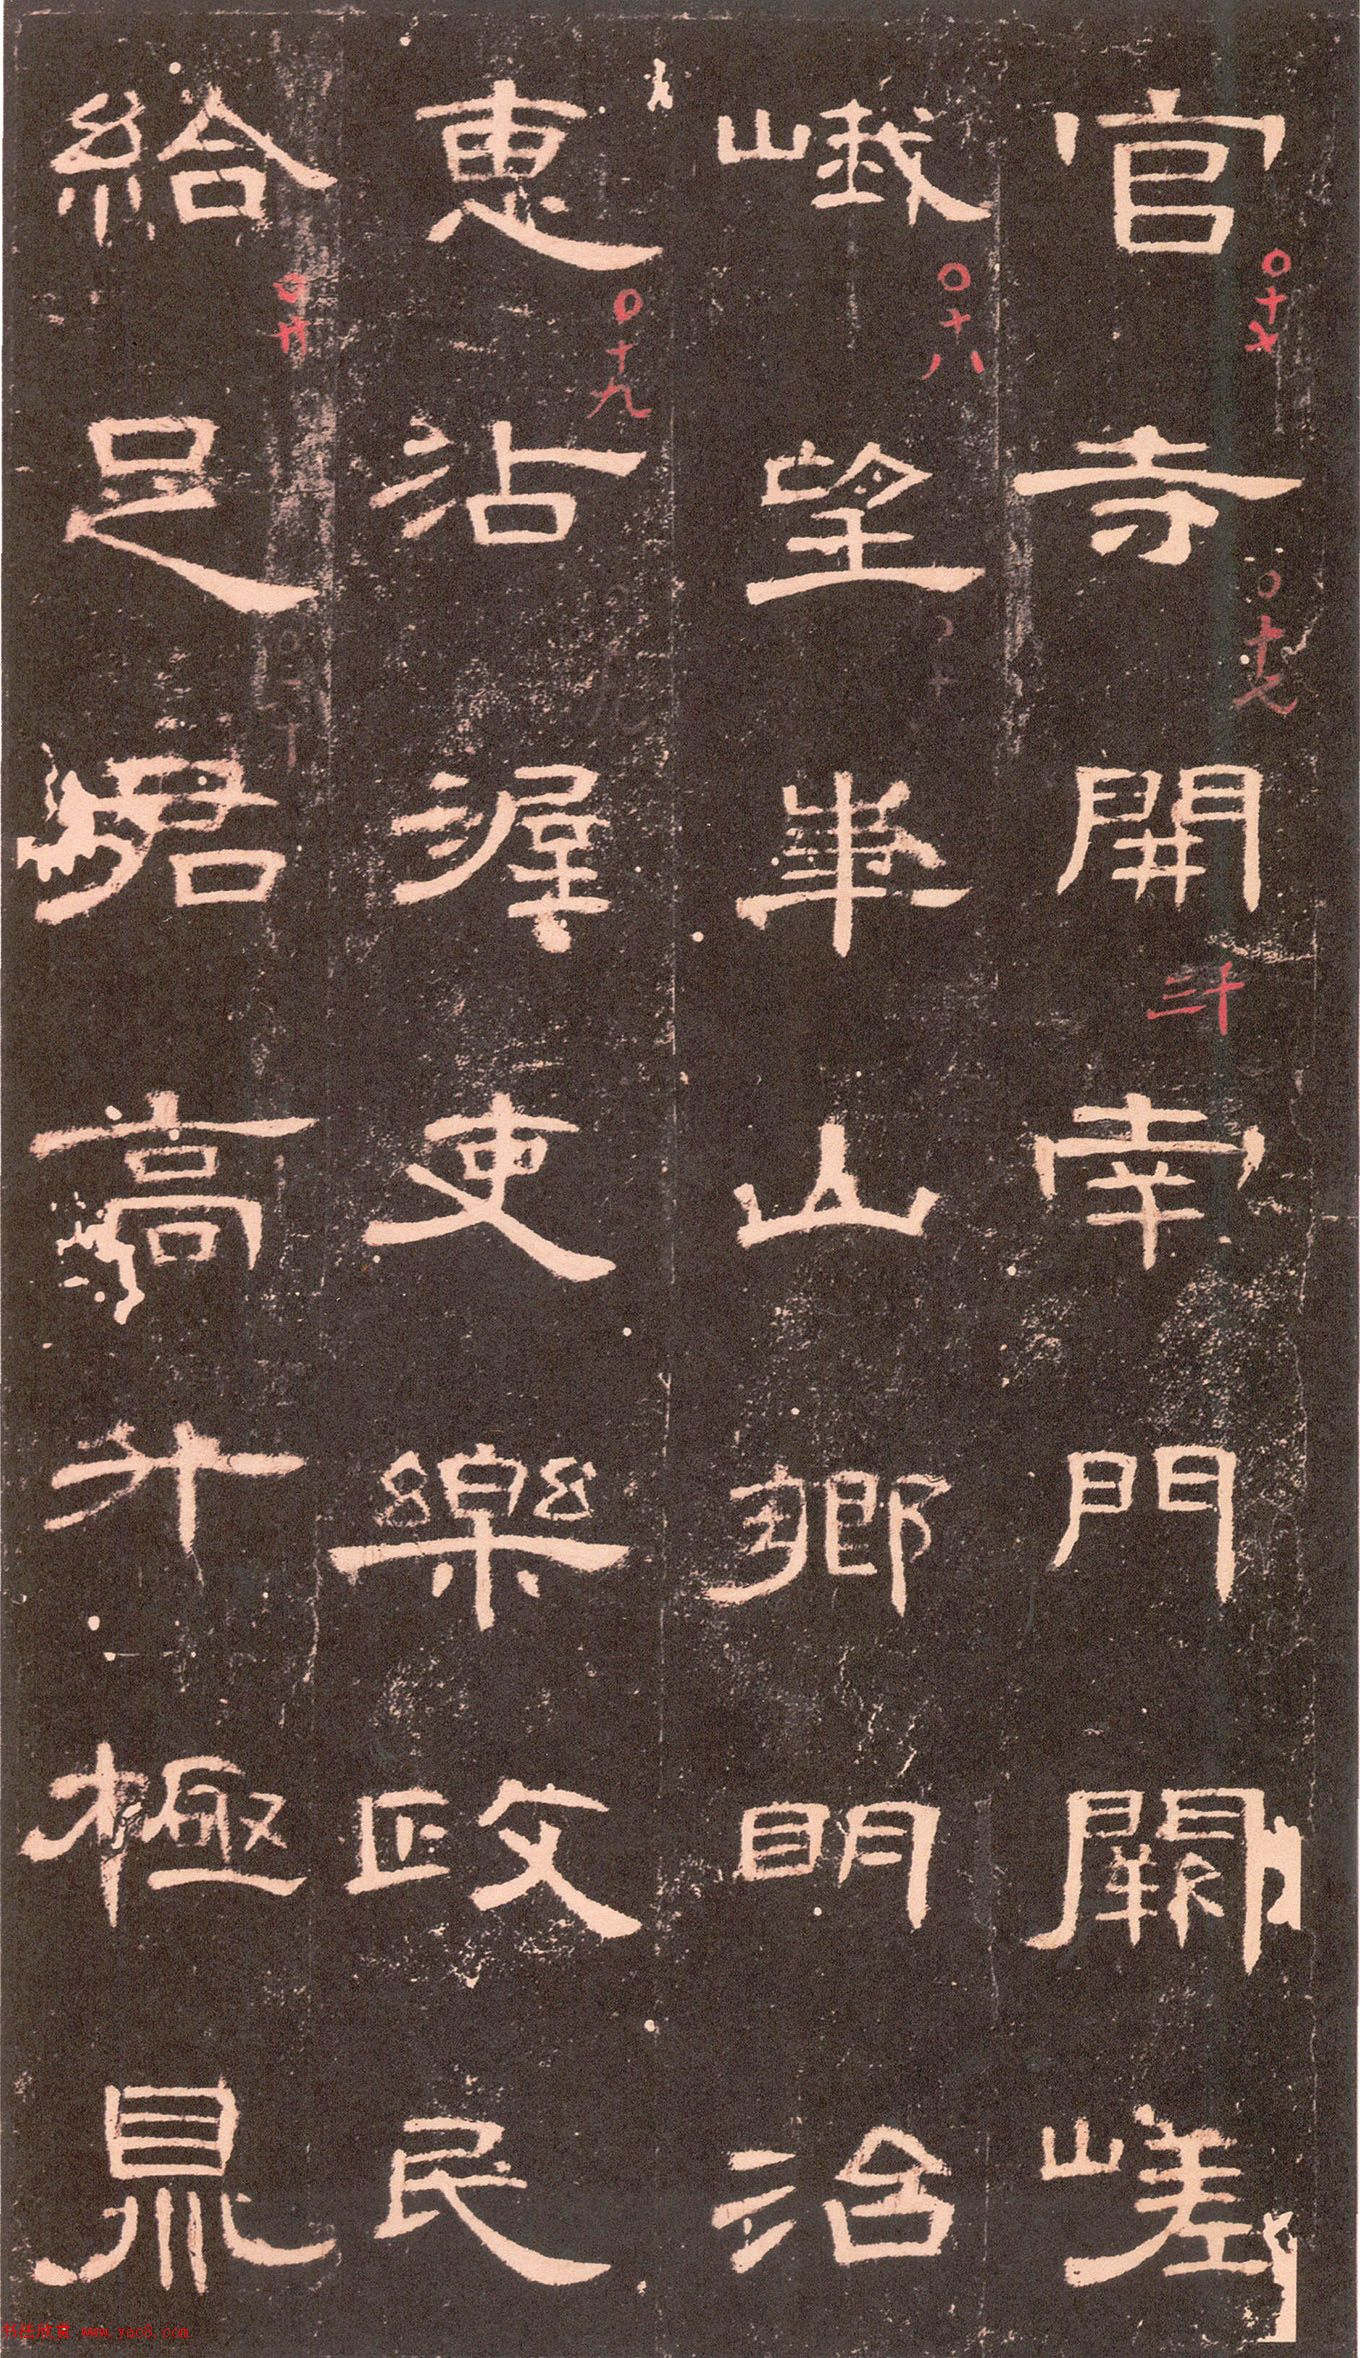 官寺開南門闕嵯
峨望華山鄉明治
惠沾渥吏樂政民
給足君高升極鼎
〇十七
〇十八
〇十九
〇廿
书法欣赏 www.yac8.com